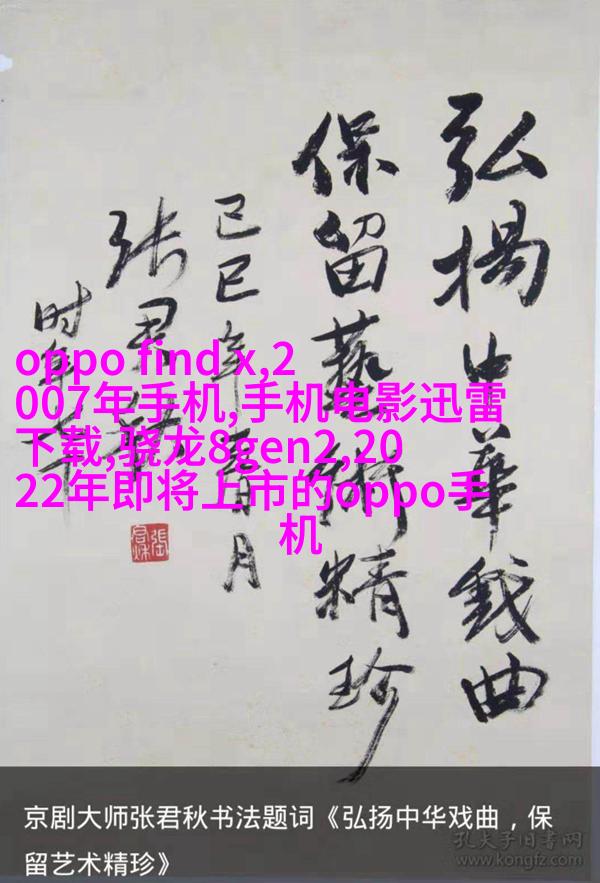 弘揚中華戲曲
保留藝術精珍
己巳年春月
张君秋
时年
oppo find x,2
007年手机,手机电影迅雷
下载,骁龙8gen2,20
22年即将上市的oppo手
机
京剧大师张君秋书法题词《弘扬中华戏曲，保
留艺术精珍》
孔夫子旧书网
www.kongfz.com